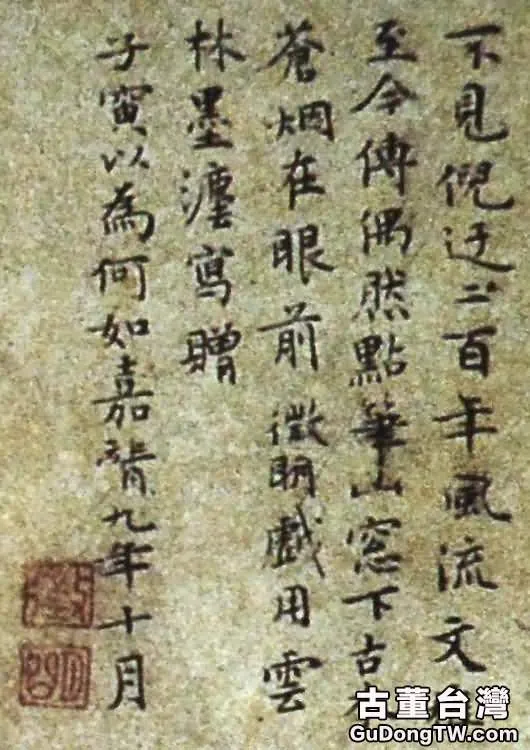 不見倪迂二百年風流文
至今傳偶然點筆山窓下古木
蒼烟在眼前 徵明戲用雲
林墨灋寫贈
子以為何如嘉靖九年十月
徵
明
古董台灣
GuDongTW.com